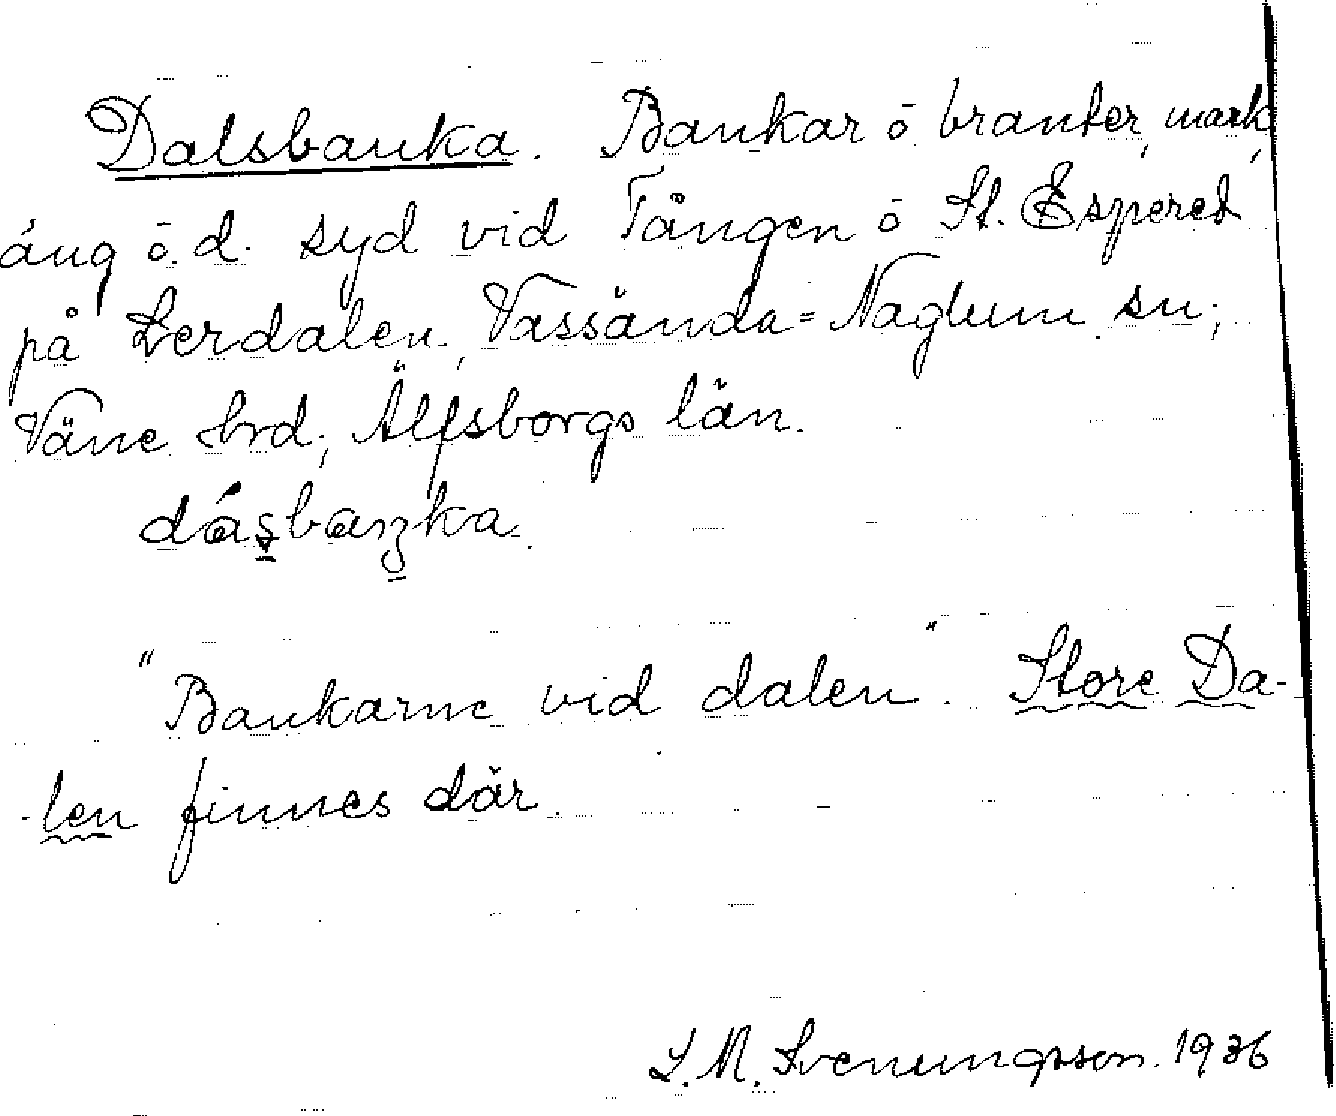 Dalsbanka. Bankar ō branter, mark,
äng ō. d. syd vid Tången ō St. Esperet
på Lerdalen, Vassända=Naglum sn;
Väne hrd; Älfsborgs län.
"Bankarne vid dalen". Store Da-
-len finnes där.
S. M. Svenungsson. 1936